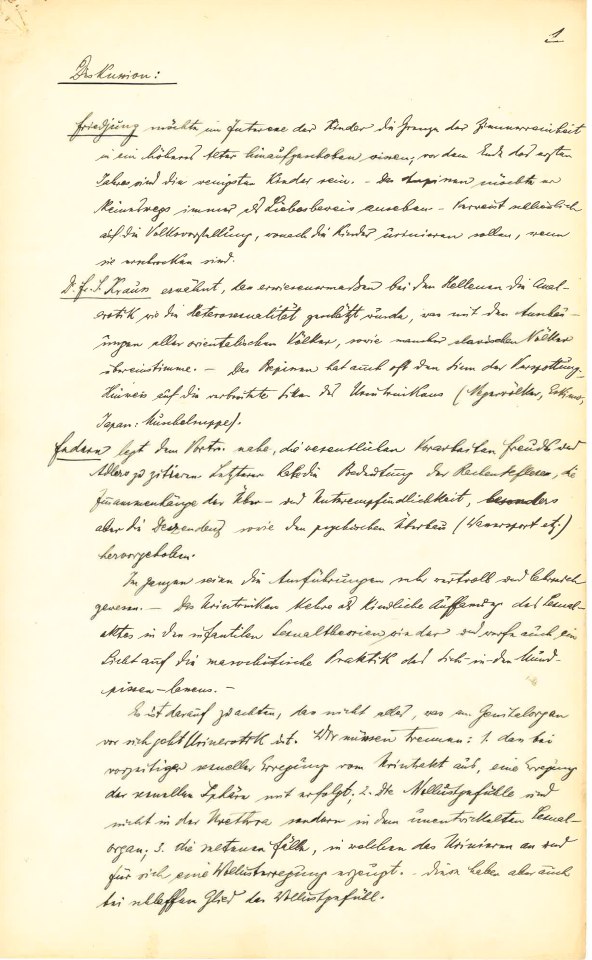 1
Diskussion:
Friedjung möchte im Interesse der Kinder die Grenze der Zimmerreinheit
in ein höheres Alter hinaufgeschoben wissen; vor dem Ende des ersten
Jahres sind die wenigsten Kinder rein. - Das möchte er
keineswegs immer als Liebesbeweis ansehen - Verweist schliesslich
auf die Volksvorstellung, wonach die Kinder urinieren sollen, wenn
sie erschrocken sind.
Dr. Fr. S. Krauss erwähnt, dass erwiesenermassen bei den Hellenen die Anal-
erotik wie die Heterosexualität geschätzt wurde, was mit den
aller orientalischen Völker, sowie mancher slavischen Völker
übereinstimme. - Das hat auch oft den Sinn der Verspottung.
Hinweis auf die verbreitete Sitte des Urintrinkens (Negervölker, Eskimo,
Japan: Muschelsuppe).
Federn legt dem Vortr. nahe, die wesentlichen Vorarbeiten Freuds und
Adlers zu zitieren. Letzterer habe die Bedeutung der die
Zusammenhänge der Über- und Unterempfindlichkeit, besonders
aber die Deszendenz sowie den psychischen Überbau (Wassersport etz.)
hervorgehoben.
Im ganzen seien die Ausführungen sehr wertvoll und lehrreich
gewesen. - Das Urintrinken kehre als kindliche Auffassung des Sexual-
aktes in den infantilen Sexualtheorien wieder und werfe auch ein
Licht auf die masochistische Praktik des Sich-in-den-Mund-
pissen-lassens. -
Es ist darauf zu achten, dass nicht alles, was am Genitalorgan
vor sich geht Urinerotik ist. Wir müssen trennen: 1. dass bei
vorzeitiger sexueller Erregung vom Urintrakt aus, eine Erregung
der sexuellen Sphäre mit erfolgt; 2. die Wollustgefühle sind
nicht in der Urethra sondern in dem unentwickelten Sexual-
organ; 3. die seltenen Fälle, in welchen das Urinieren an und
für sich eine Wollusterregung erzeugt. - Diese haben aber auch
bei schlaffem Glied das Wollustgefühl.